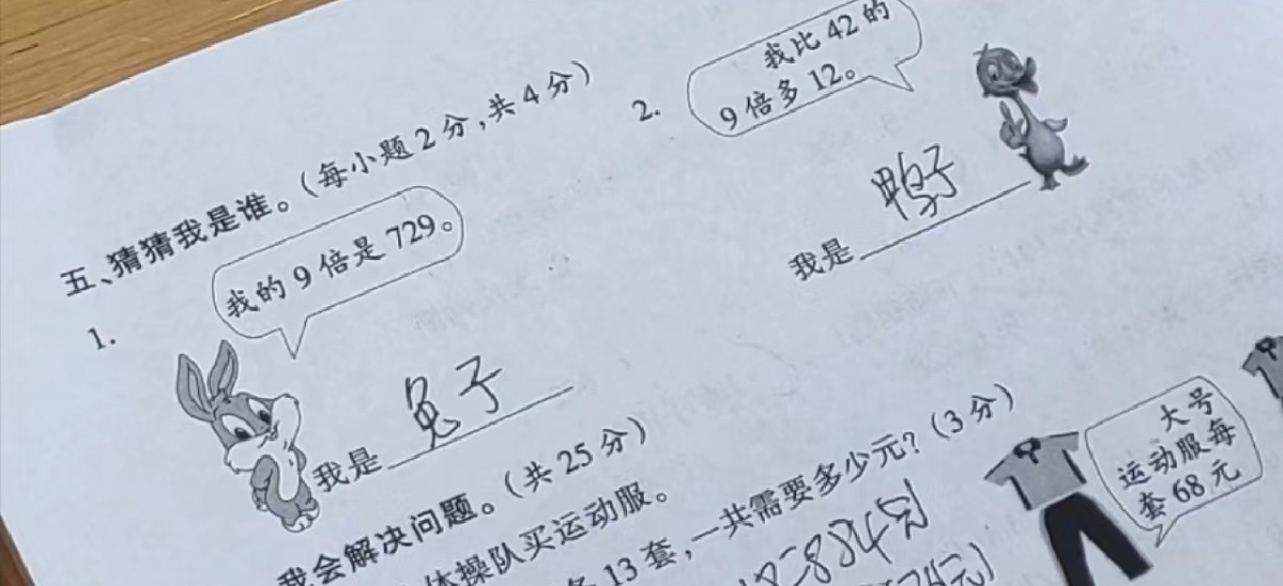 五、猜猜我是谁。(每小题2分,共4分)
1.
我的9倍是729。
我是 兔子
2.
我比42的
9倍多12。
我是 鸭子
我会解决问题。(共25分)
体操队买运动服。
13套,一共需要多少元?(3分)
大号
运动服每
套68元